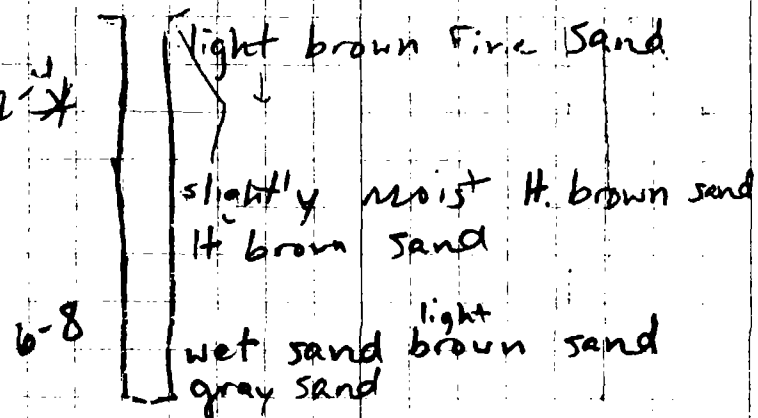 light brown Fine Sand
slightly moist lt. brown sand
lt brown sand
6-8
light
wet sand brown sand
gray sand